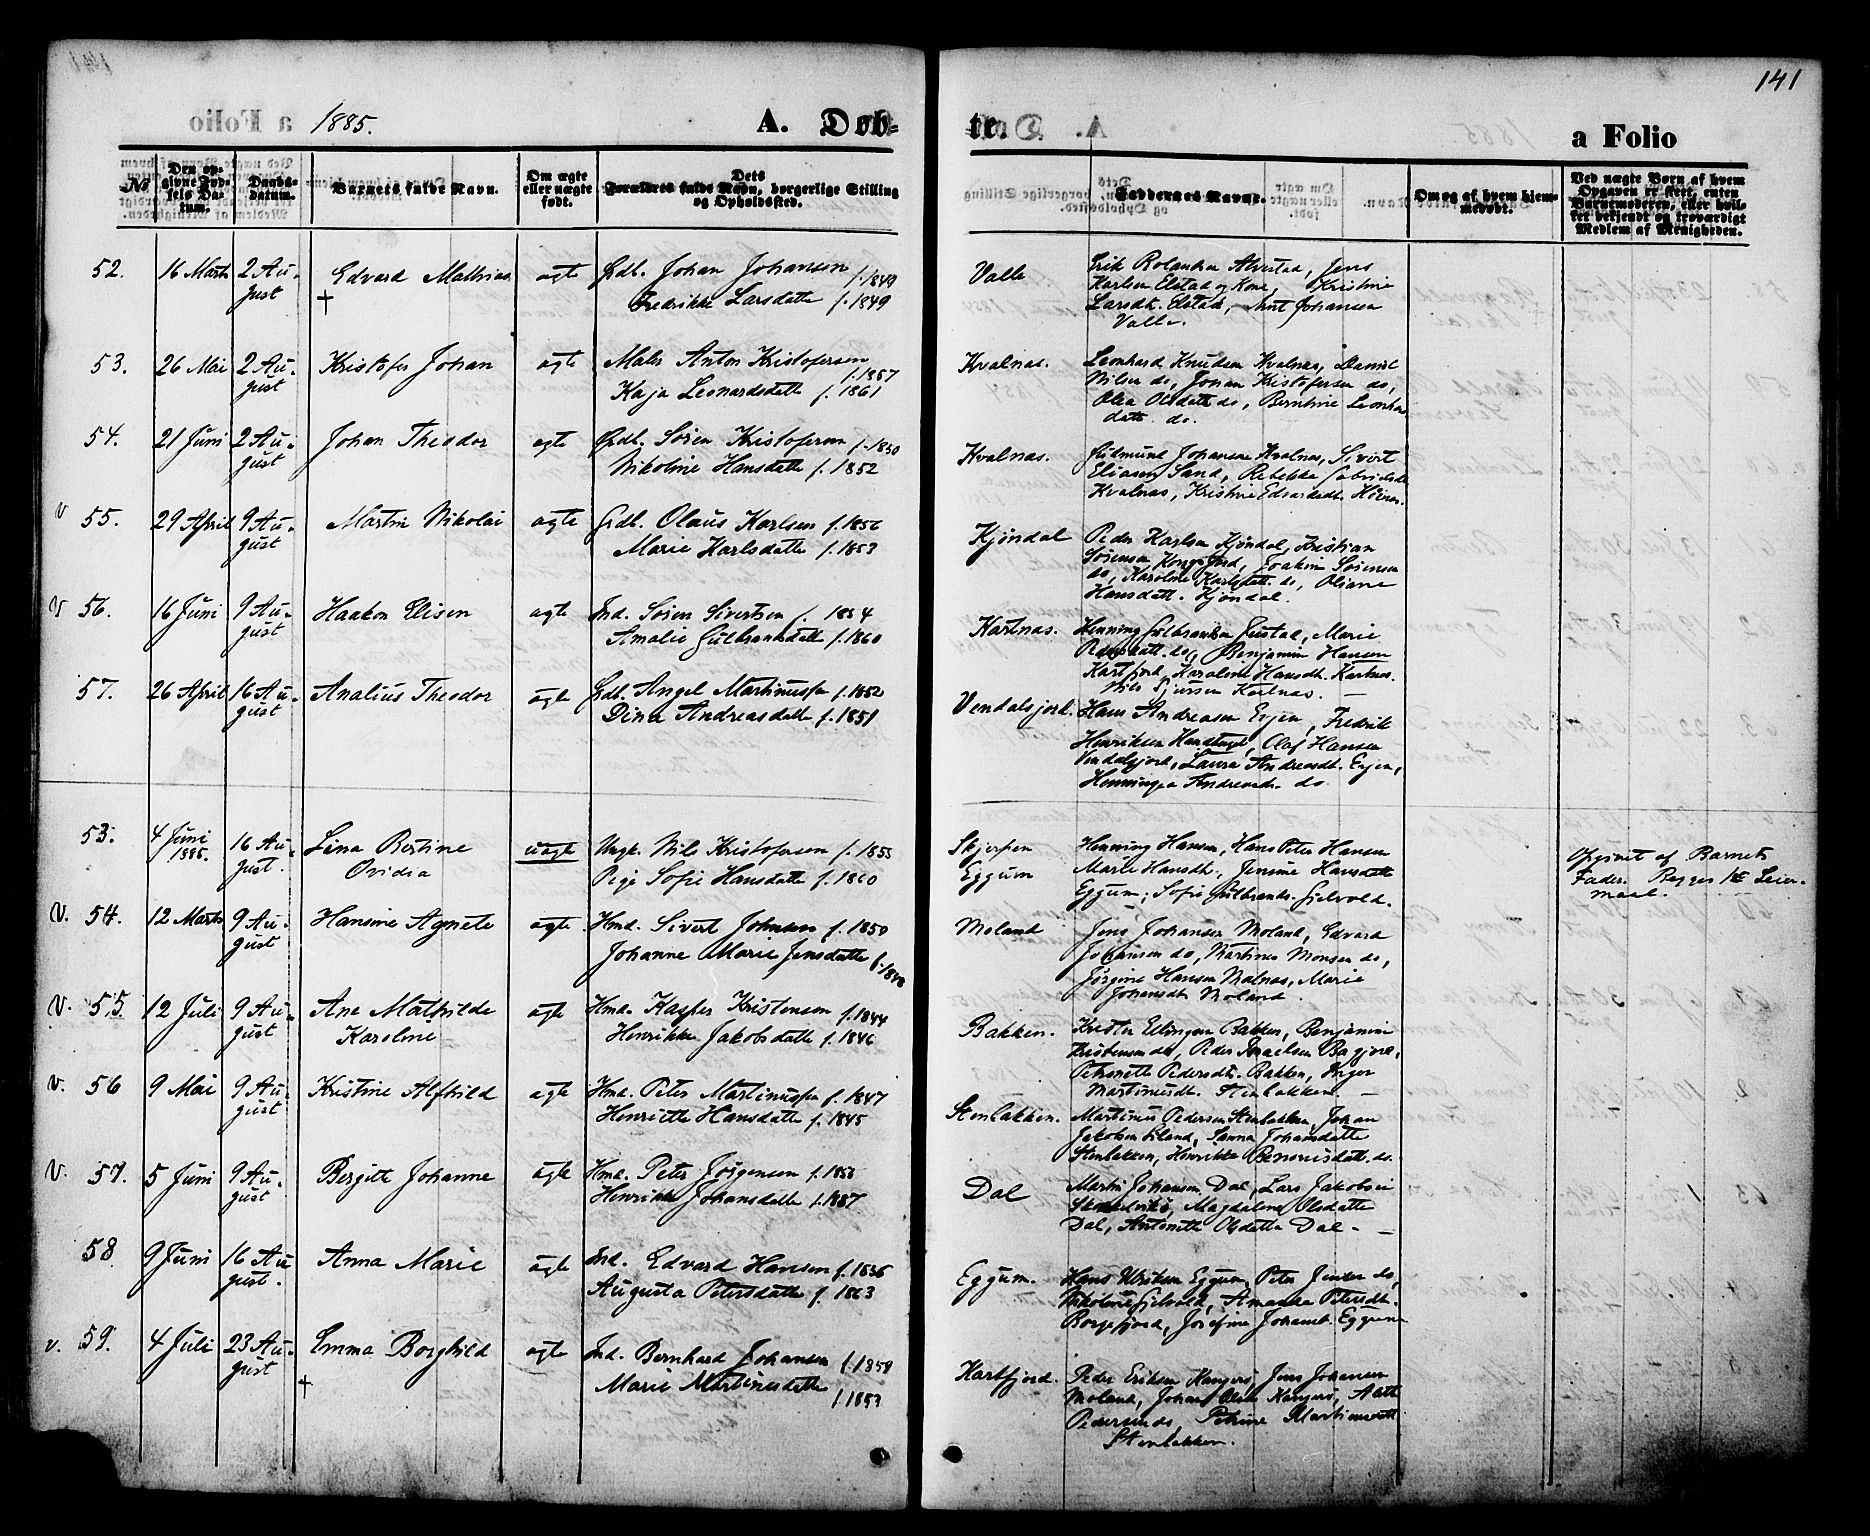 141
1885.
a Folio
A. Døb-
te.
a Folio
No
Den op-
givne Fød-
sels Da-
tum.
Daabs-
datum.
Barnets fulde Navn.
Om ægte
eller uægte
født.
Dets
Forældres fulde Navn, borgerlige Stilling
og Opholdssted.
Faddernes Navne.
Om og af hvem hjem-
medøbt.
Ved uægte Børn af hvem
Opgaven er skeet, enten
Barnemoderen, eller hvil-
ket bekjendt og troværdigt
Medlem af Menigheden.
52. 16 Marts 2 Au-
gust
Edvard Mathias
†
ægte
Grdb. Johan Johansen f. 1849
Fredrikke Larsdatte f. 1849
Valle
Erik Rolandsen Alvestad, Jens
Karlsen Elstad og Kone, Kristine
Larsdt. Elstad, Arnt Johansen
Valle.
53. 26 Mai 2 Au-
gust
Kristofer Johan
ægte
Maler Anton Kristofersen
f. 1857
Kaja Leonardsdatte f. 1861
Kvalnæs.
Leonhard Knudsen Kvalnæs, Daniel
Nilsen do, Johan Kristofersen do,
Olea Olsdatte do, Berntine Leonhards
datte do.
54. 21 Juni 2 Au-
gust
Johan Theodor
ægte
Grdb. Søren Kristofersen f. 1850
Nikoline Hansdatte f. 1852
Kvalnæs.
Gudmund Johansen Kvalnæs, Sivert
Eliasen Sand, Rebekka Gabrielsdt
Kvalnæs, Kristine Edvardsdt.
v 55. 29 April 9 Au-
gust
Martin Nikolai
ægte
Grdb. Olaus Karlsen f. 1856
Marie Karlsdatte f. 1853
Kjøndal
Peder Karlsen Kjøndal, Kristian
Sørensen, Joakim Sørensen
do, Karoline Karlsdatt. do, Oliane
Hansdatt. Kjøndal.
v 56. 16 Juni 9 Au-
gust
Haakon Elisen
ægte
Ind. Søren Sivertsen f. 1854
Amalie Gulbrandsdatte f. 1860
Kartnæs.
Henning Gulbrandsen Justad, Marie
Pedersdatt. do, Benjamin Hansen
Kartfjord, Karoline Hansdt. Kartnæs.
Nils Sjursen Kartnæs.
57. 26 April 16 Au-
gust
Analius Theodor
ægte
Grdb. Angel Martinussen f. 1852
Dina Andreasdatte f. 1851
Vendalsjord.
Hans Andreasen Evjen, Fredrik
Henriksen, Olaf Hansen
Vendalsjord, Laura Andreasdt. Evjen,
Henningea Andreasdt. do
53. 4 Juni
1885.
16 Au-
gust.
Lina Bertine
Ovidia
uægte
Ungk. Nils Kristofersen f. 1855
Pige Sofie Hansdatte f. 1860
Skjerpen
Eggum
Henning Hansen, Hans Peter Hansen
Marte Hansdt, Jenine Hansdatte
Eggum; Sofie Gulbrandsd. Gjelvold.
Opgivet af Barnets
Fader. Begges 1te Leier-
maal.
V. 54. 12 Marts 9 Au-
gust
Hansine Agnete
ægte
Hmd. Sivert Johnsen f. 1850
Johanne Marie Jensdatte
Moland
Jens Johansen Moland, Edvard
Johansen do, Martines Monsen do,
Jørgine Hansen Malnæs, Marie
Johansdt Moland.
V. 55. 12 Juli 9 Au-
gust
Ane Mathilde
Karoline
ægte
Hmd. Kasper Kristensen f. 1844
Henrikke Jakobsdatte f. 1846
Bakken.
Krister Ellingsen Bakken, Benjamin
Kristensen do, Peder Israelsen,
Petronelle Pedersdt. Bakken, Inger
Martinusdt. Stenbakken.
v. 56 9 Mai 9 Au-
gust
Kristine Alfhild
ægte
Hmd. Peter Martinussen f. 1847
Henriette Hansdatte f. 1845
Stenbakken.
Martinus Pedersen Stenbakken, Johan
Jakobsen, Sanna Johansdatte
Stenbakken, Henrikke Benoniusdatt. do.
V. 57. 5 Juni 9 Au-
gust
Bergitte Johanne
ægte
Hmd. Peter Jørgensen f. 1858
Henrikke Johansdatte f. 1857
Dal
Martin Johansen Dal, Lars Jakobsen
Magdalena Olsdatte
Dal, Antonette Olsdatte Dal.
58 9 Juni 16 Au-
gust.
Anna Marie
ægte
Ind. Edvard Hansen f. 1856
Augusta Petersdatte f. 1863
Eggum.
Hans Ulriksen Eggum, Peter Jensen do,
Nikoline Gjelvold, Amanda Petersdt.
Borgefjord, Josefine Johansdt. Eggum
v. 59. 4 Juli 23 Au-
gust
Emma Borghild
†
ægte
Ind. Bernhard Johansen f. 1859
Marie Martinusdatte
f. 1853
Kartfjord.
Peder Eriksen Kangerø, Jens Johansen
Moland, Johan Olsen Kangerø,
Pedersen do, Petrine Martinusdt
Stenbakken.